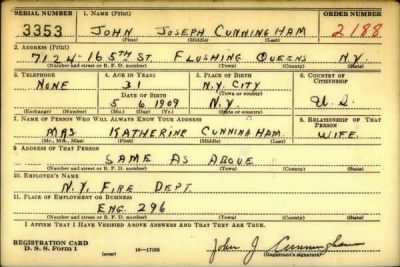 SERIAL NUMBER 1. NAME (Print) ORDER NUMBER
3353 JOHN JOSEPH CUNNINGHAM 2188
(First) (Middle) (Last)
2. ADDRESS (Print)
7124-165TH ST. FLUSHING QUEENS N.Y.
(Number and street or R. F. D. number) (Town) (County) (State)
3. TELEPHONE 4. AGE IN YEARS 5. PLACE OF BIRTH 6. COUNTRY OF CITIZENSHIP
NONE 31 N.Y. CITY
DATE OF BIRTH (Town or county)
5 6 1909 N.Y. U.S.
(Exchange) (Number) (Mo.) (Day) (Yr.) (State or country)
7. NAME OF PERSON WHO WILL ALWAYS KNOW YOUR ADDRESS 8. RELATIONSHIP OF THAT PERSON
MRS KATHERINE CUNNINGHAM. WIFE.
(Mr., Mrs., Miss) (First) (Middle) (Last)
9. ADDRESS OF THAT PERSON
SAME AS ABOVE
(Number and street or R. F. D. number) (Town) (County) (State)
10. EMPLOYER'S NAME
N.Y. FIRE DEPT.
11. PLACE OF EMPLOYMENT OR BUSINESS
ENG. 296
(Number and street or R. F. D. number) (Town) (County) (State)
I AFFIRM THAT I HAVE VERIFIED ABOVE ANSWERS AND THAT THEY ARE TRUE.
REGISTRATION CARD
D. S. S. Form 1 (over) 16-17105 John J Cunningham
(Registrant's signature)